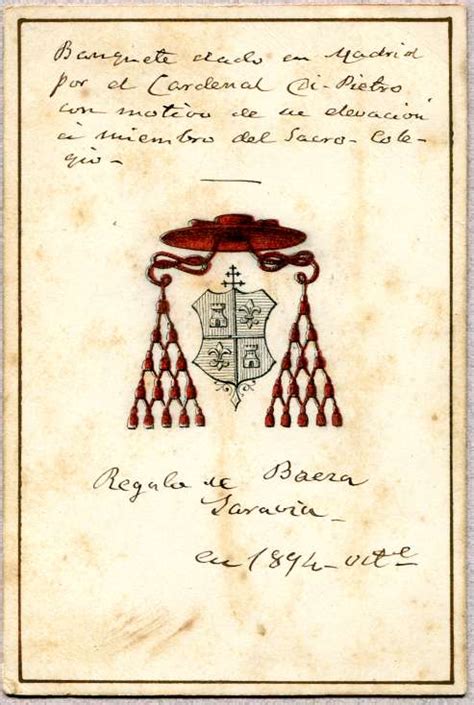 Banquete dado en Madrid
por el Cardenal Di-Pietro
con motivo de su elevación
á miembro del Sacro-Cole-
gio-
Regalo de Baeza
Saravia-
en 1894-